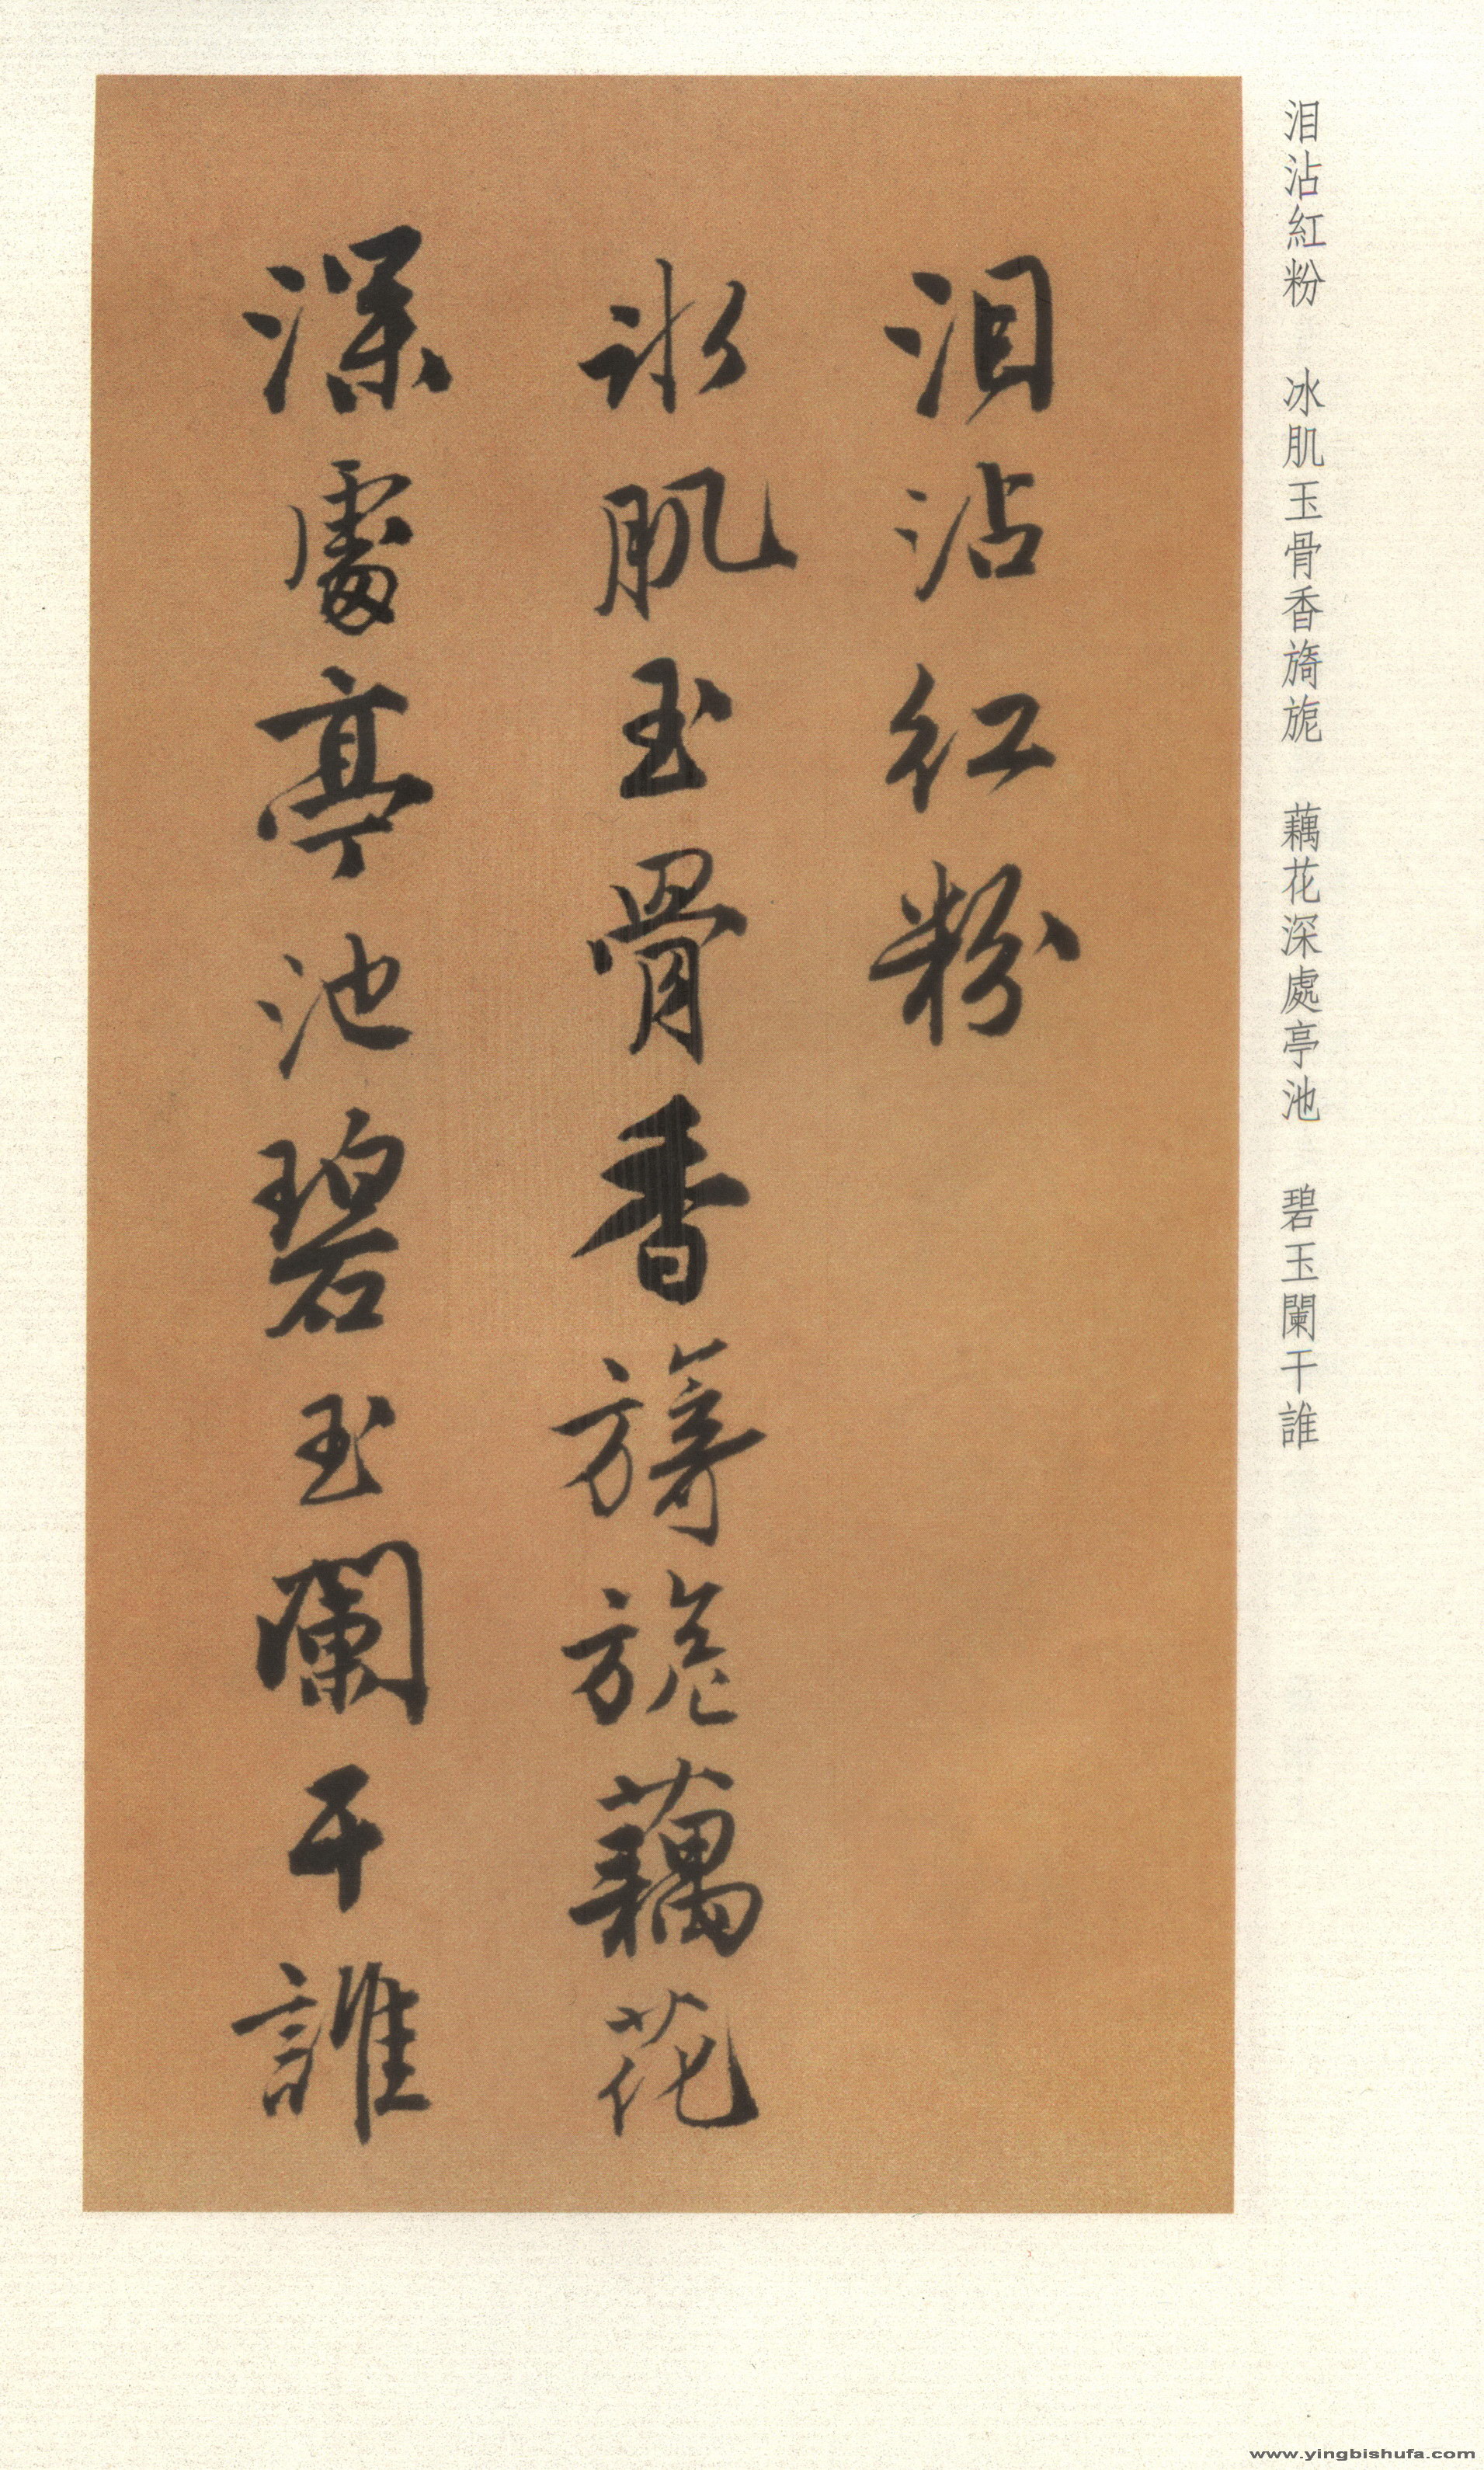 泪沾紅粉　冰肌玉骨香旖旎　藕花深處亭池　碧玉闌干誰
泪沾红粉
冰肌玉骨香旖旎藕花
深處亭池碧玉闌干誰
www.yingbishufa.com